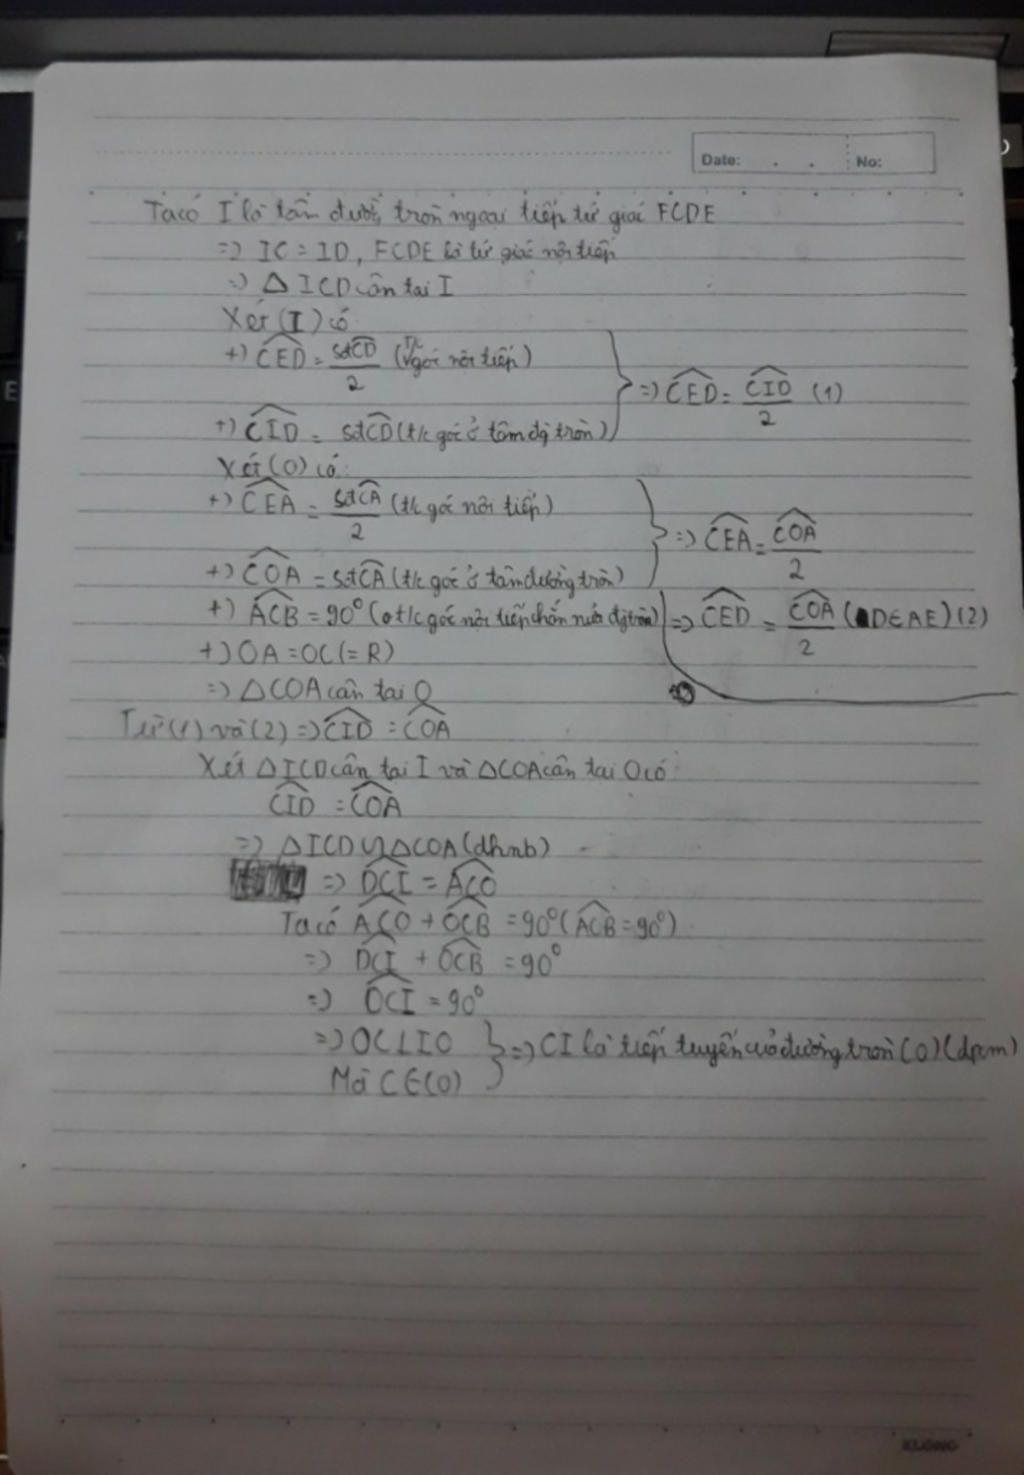 Date: . . No:
Ta có I là tâm đường tròn ngoại tiếp tứ giác FCDE
=> IC = ID, FCDE là tứ giác nội tiếp
=> △ ICD cân tại I
Xét (I) có
+) CED = sđCD/2 (t/c góc nội tiếp)
=> CED = CID/2 (1)
+) CID = sđCD (t/c góc ở tâm đg tròn)
Xét (O) có:
+) CEA = sđCA/2 (t/c góc nội tiếp)
=> CEA = COA/2
+) COA = sđCA (t/c góc ở tâm đường tròn)
+) ACB = 90° (t/c góc nội tiếp chắn nửa đg tròn) => CED = COA/2 (D∈AE) (2)
+) OA = OC (= R)
=> △COA cân tại O
Từ (1) và (2) => CID = COA
Xét △ICD cân tại I và △COA cân tại O có
CID = COA
=> △ICD ∽ △COA (dhnb)
=> DCI = ACO
Ta có ACO + OCB = 90° (ACB = 90°)
=> DCI + OCB = 90°
=> OCI = 90°
=> OC⊥IO
=> CI là tiếp tuyến của đường tròn (O) (đpcm)
Mà C∈(O)
KLONG